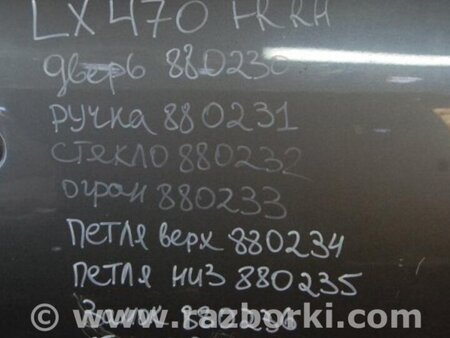 LX470 FR RH
дверь 880230
ручка 880231
стекло 880232
огран 880233
петля верх 880234
петля низ 880235
Замок 880236
www.razborki.com